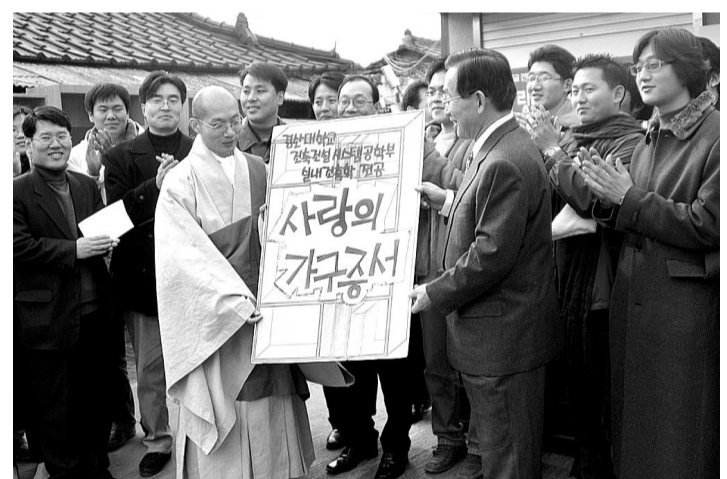 경남대학교
건축건설시스템공학부
실내건축학 전공
사랑의
가구증서